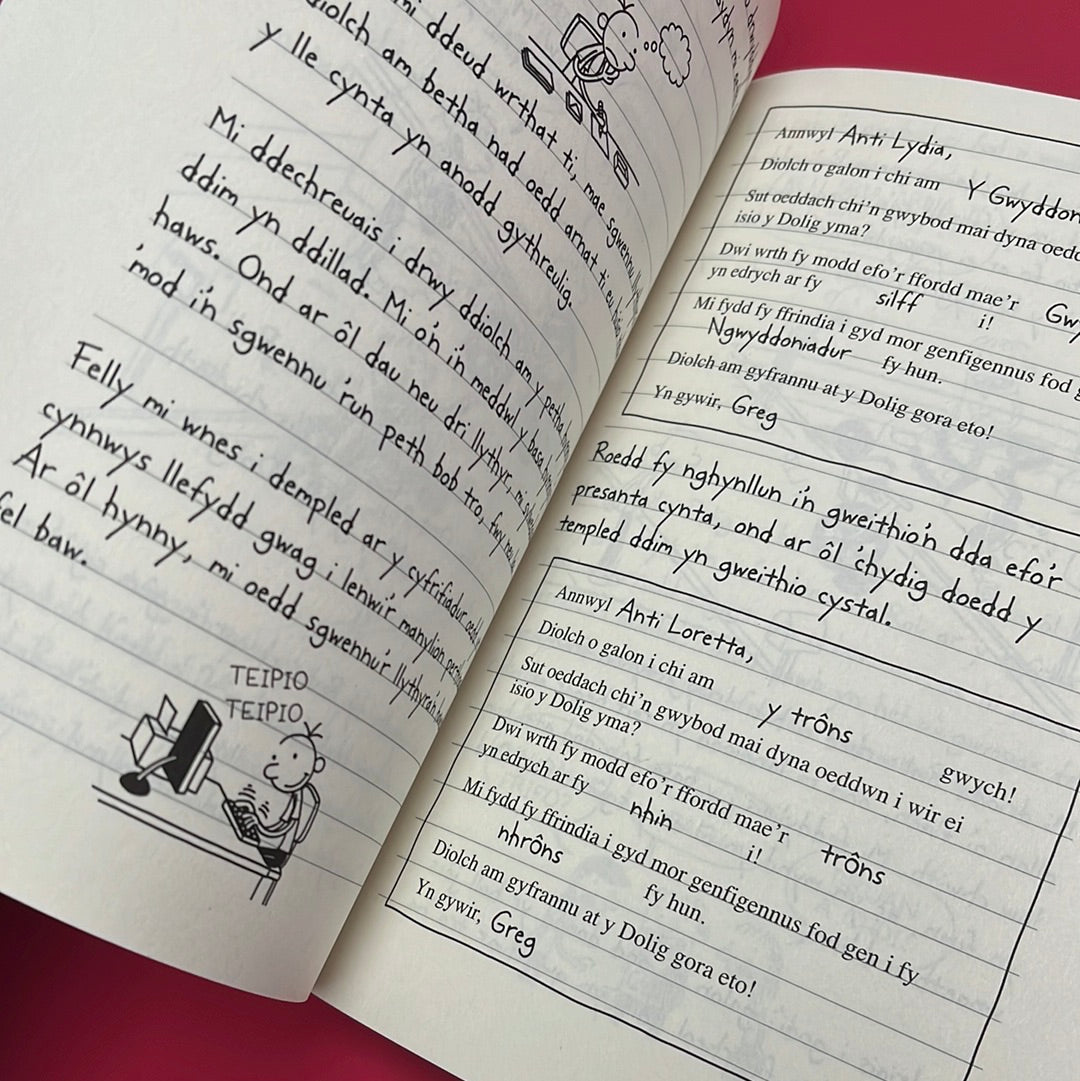 mi ddeud wrthat ti, mae sgwennu
diolch am betha nad oedd arnat ti eu
y lle cynta yn anodd gythreulig.
Mi ddechreuais i drwy ddiolch am y petha
ddim yn ddillad. Mi o'n i'n meddwl y basa
haws. Ond ar ôl dau neu dri llythyr, mi
'mod i'n sgwennu 'run peth bob tro, fwy neu
Felly mi whes i dempled ar y cyfrifiadur oedd
cynnwys llefydd gwag i lenwi'r manylion
Ar ôl hynny, mi oedd sgwennu'r llythyra'n
fel baw.
TEIPIO
TEIPIO
Annwyl Anti Lydia,
Diolch o galon i chi am Y
Sut oeddach chi'n gwybod mai dyna
isio y Dolig yma?
Dwi wrth fy modd efo'r ffordd mae'r
yn edrych ar fy silff i!
Mi fydd fy ffrindia i gyd mor genfigennus fod
Ngwyddoniadur fy hun.
Diolch am gyfrannu at y Dolig gora eto!
Yn gywir, Greg
Roedd fy nghynllun i'n gweithio'n dda efo'r
presanta cynta, ond ar ôl 'chydig doedd y
templed ddim yn gweithio cystal.
Annwyl Anti Loretta,
Diolch o galon i chi am y trôns gwych!
Sut oeddach chi'n gwybod mai dyna oeddwn i wir ei
isio y Dolig yma?
Dwi wrth fy modd efo'r ffordd mae'r trôns
yn edrych ar fy nhin i!
Mi fydd fy ffrindia i gyd mor genfigennus fod gen i fy
nhrôns fy hun.
Diolch am gyfrannu at y Dolig gora eto!
Yn gywir, Greg